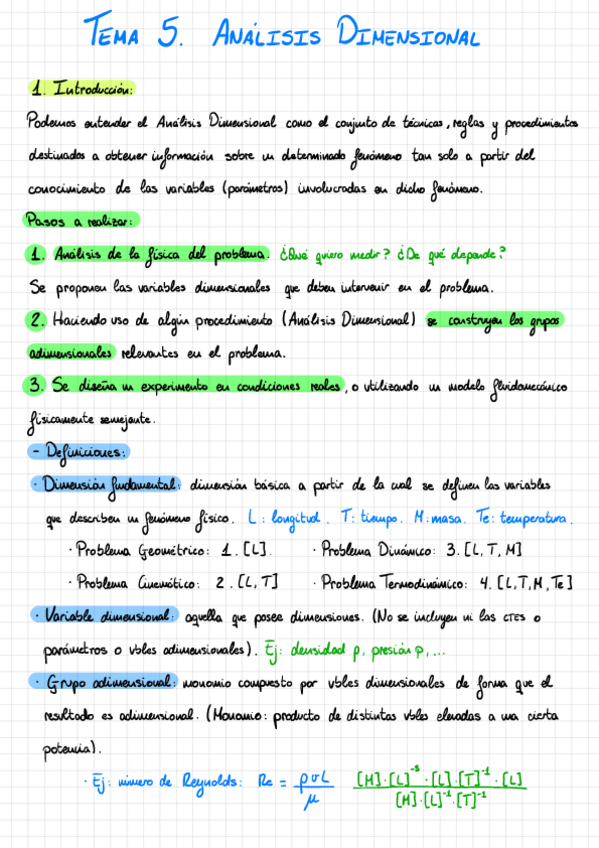 TEMA 5. ANÁLISIS DIMENSIONAL
1. Introducción:
Podemos entender el Análisis Dimensional como el conjunto de técnicas, reglas y procedimientos
destinados a obtener información sobre un determinado fenómeno tan solo a partir del
conocimiento de las variables (parámetros) involucradas en dicho fenómeno.
Pasos a realizar:
1. Análisis de la física del problema. ¿Qué quiero medir? ¿De qué depende?
Se proponen las variables dimensionales que deben intervenir en el problema.
2. Haciendo uso de algún procedimiento (Análisis Dimensional) se construyen los grupos
adimensionales relevantes en el problema.
3. Se diseña un experimento en condiciones reales, o utilizando un modelo fluidomecánico
físicamente semejante.
- Definiciones:
· Dimensión fundamental: dimensión básica a partir de la cual se definen las variables
que describen un fenómeno físico. L: longitud. T: tiempo. M: masa. Te: temperatura.
· Problema Geométrico: 1. [L]. · Problema Dinámico: 3. [L, T, M]
· Problema Cinemático: 2. [L, T] · Problema Termodinámico: 4. [L, T, M, Te]
· Variable dimensional: aquella que posee dimensiones. (No se incluyen ni las CTES o
parámetros o vbles adimensionales). Ej: densidad ρ, presión p, ...
· Grupo adimensional: monomio compuesto por vbles dimensionales de forma que el
resultado es adimensional. (Monomio: producto de distintas vbles elevadas a una cierta
potencia).
· Ej: número de Reynolds: Re = ρvL / μ [M]·[L]⁻³·[L]·[T]⁻¹·[L] / [M]·[L]⁻¹·[T]⁻¹